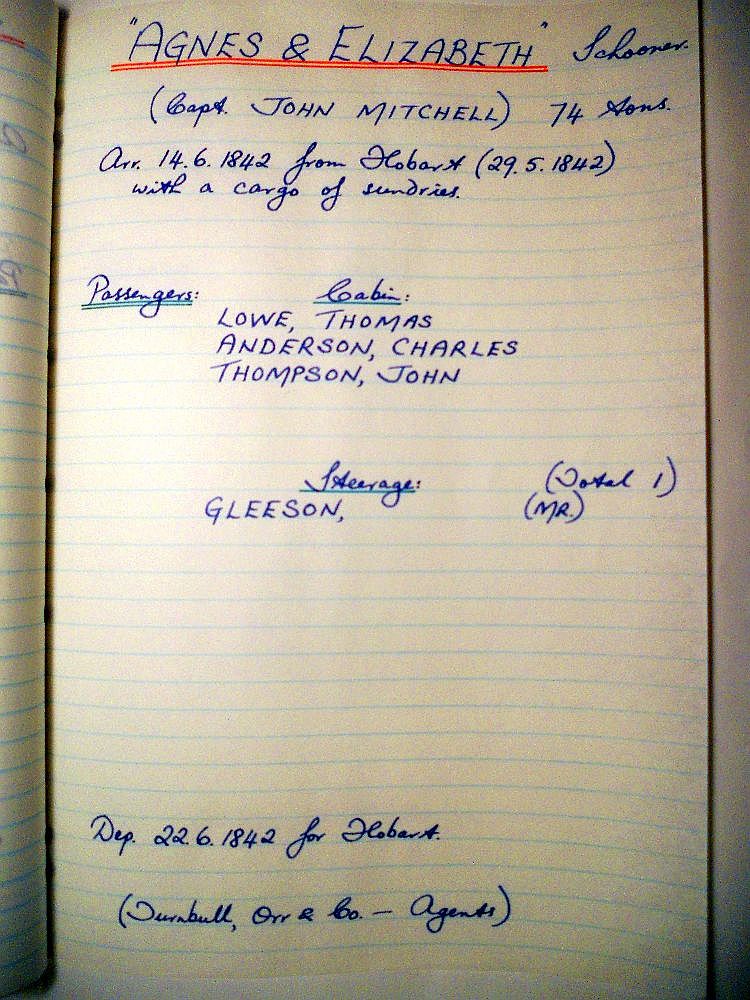 "AGNES & ELIZABETH" Schooner.
(Capt. JOHN MITCHELL) 74 tons.
Arr. 14.6.1842 from Hobart (29.5.1842)
with a cargo of sundries.
Passengers: Cabin:
LOWE, THOMAS
ANDERSON, CHARLES
THOMPSON, JOHN
Steerage: (Total 1)
GLEESON, (MR.)
Dep. 22.6.1842 for Hobart.
(Turnbull, Orr & Co. — Agents)